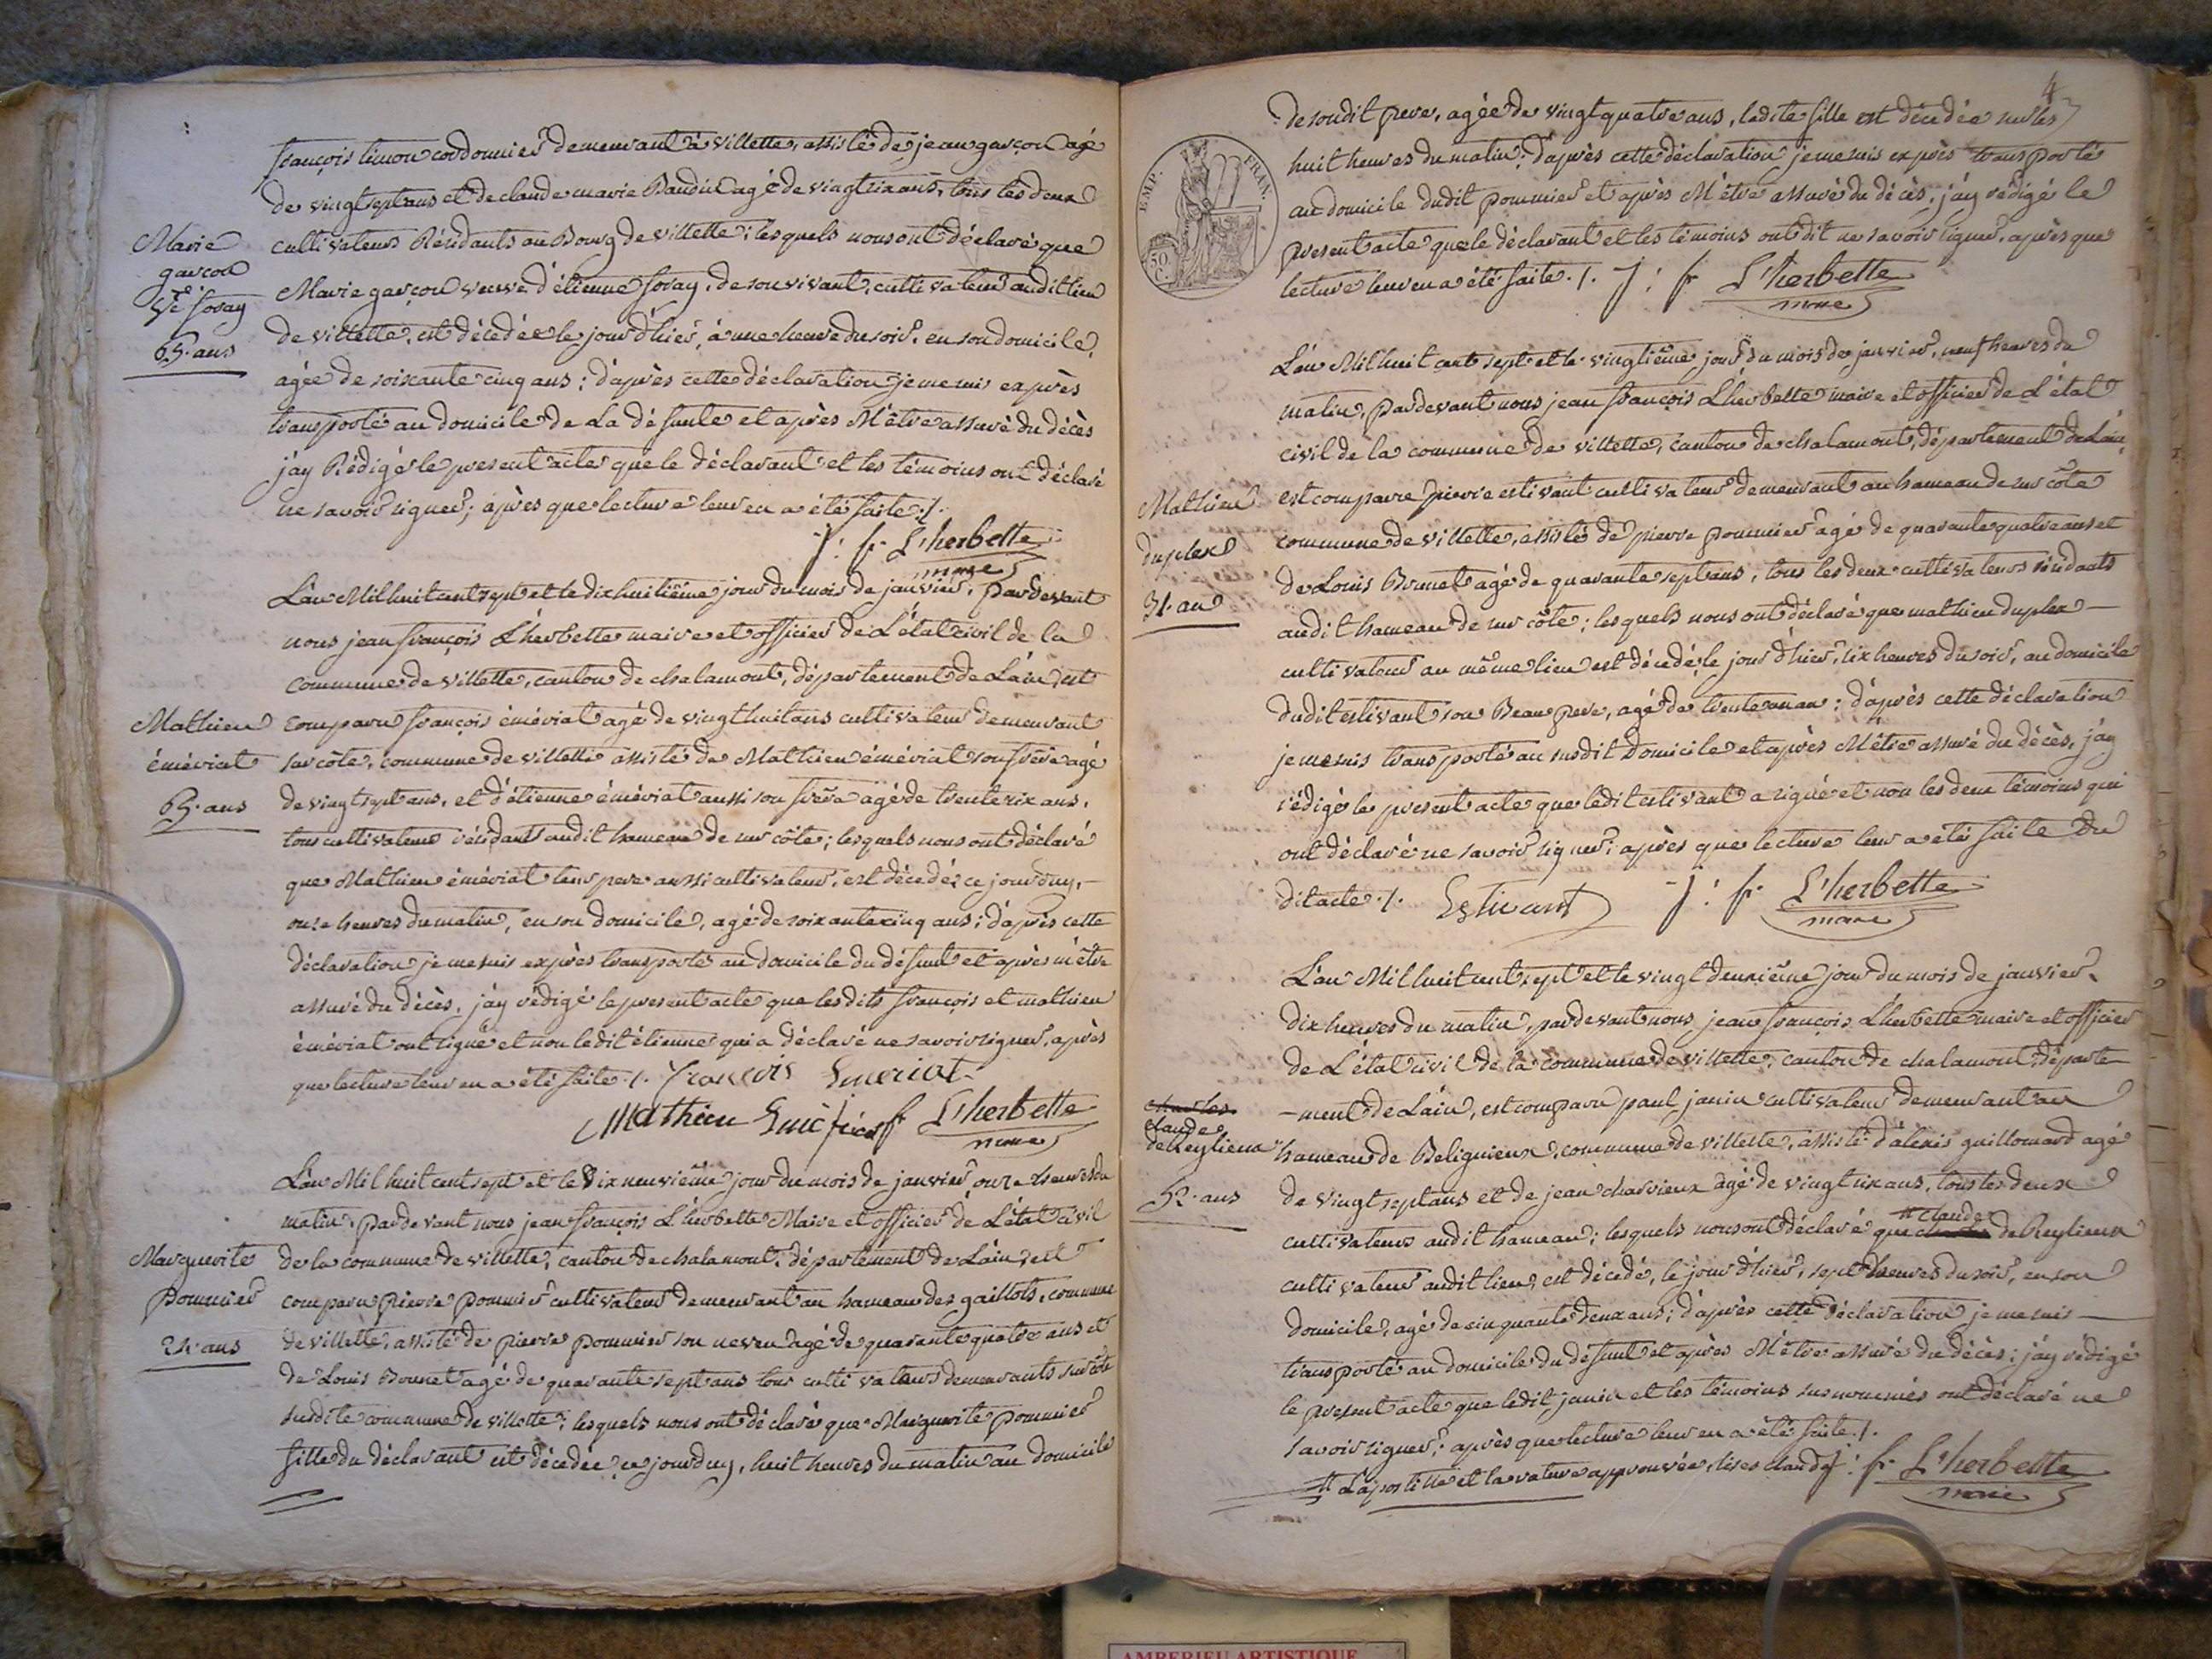 françois limon cordonnier demeurant à villette, assisté de jean garçon agé
de vingt sept ans et de claude marie Baudin agé de vingt six ans, tous les deux
Marie
garçon
Ve foray
65. ans
cultivateurs Résidants au Bourg de villette; lesquels nous ont déclaré que
Marie garçon veuve d'étienne foray, de son vivant, cultivateur audit lieu
de villette, est décédée le jour d'hier, à une heure du soir, en son domicile,
agée de soixante cinq ans; d'après cette déclaration je me suis exprès
transporté au domicile de La défunte et après M'être assuré du décès
j'ay Rédigé le present acte que le déclarant et les témoins ont déclaré
ne savoir signer; après que lecture leur en a été faite ./.
J: fr L'herbette
maire
L'an Mil huit cent sept et le dix huitième jour du mois de janvier, pardevant
nous jean françois L'herbette maire et officier de L'état civil de la
commune de villette, canton de chalamont, département de L'ain, est
Mathieu
émériat
65. ans
comparu françois émériat agé de vingt huit ans cultivateur demeurant
sur côte, commune de villette assisté de Mathieu émériat son frère agé
de vingt sept ans, et d'étienne émériat aussi son frère agé de trente six ans,
tous cultivateurs résidants audit hameau de sur côte; lesquels nous ont déclaré
que Mathieu émériat leur pere aussi cultivateur, est décédé; ce jourduy,
onze heures du matin, en son domicile, agé de soixante cinq ans; d'après cette
déclaration je me suis exprès transporté au domicile du défunt et après m'être
assuré du décès, j'ay rédigé le present acte que lesdits françois et mathieu
émériat ont signé et non ledit étienne qui a déclaré ne savoir signer, après
que lecture leur en a été faite ./. françois Emeriat
Mathieu J: fr L'herbette
maire
L'an Mil huit cent sept et le Dix neuvième jour du mois de janvier onze heures du
matin, pardevant nous jean françois L'herbette Maire et officier de L'état civil
Marguerite
Pommier
24. ans
de la commune de villette, canton de chalamont, département de L'ain, est
comparu Pierre Pommier cultivateur demeurant au hameau des gaillots, commune
de villette, assisté de pierre pommier son neveu agé de quarante quatre ans et
de Louis Bonnet agé de quarante sept ans tous cultivateurs demeurants sur côte
susdite commune de villette; lesquels nous ont déclaré que Marguerite pommier
fille du déclarant est décédée ce jourduy, huit heures du matin au domicile
4
EMP. FRAN.
50 C.
de soudit pere, agée de vingt quatre ans, ladite fille est décédée sur les
huit heures du matin; d'après cette déclaration je me suis exprès transporté
au domicile dudit pommier et après M'être assuré du décès, j'ay rédigé le
present acte que le déclarant et les témoins ont dit ne savoir signer, après que
lecture leur en a été faite ./. J: fr L'herbette
maire
L'an Mil huit cent sept et le vingtième jour du mois de janvier, neuf heures du
matin, pardevant nous jean françois L'herbette maire et officier de L'état
civil de la commune de villette, canton de chalamont, département de L'ain,
Mathieu
duplex
31. an
est comparu pierre estivant cultivateur demeurant au hameau de sur côte
commune de villette, assisté de pierre pommier agé de quarante quatre ans et
de Louis Bonnet agé de quarante sept ans, tous les deux cultivateurs résidants
audit hameau de sur côte; lesquels nous ont déclaré que mathieu duplex
cultivateur au même lieu est décédé, le jour d'hier, six heures du soir, au domicile
dudit estivant son Beau pere, agé de trente un an; d'après cette déclaration
je me suis transporté au susdit Domicile et après M'être assuré du décès, j'ay
rédigé le present acte que ledit estivant a signé et non les deux témoins qui
ont déclaré ne savoir signer; après que lecture leur a été faite du
dit acte ./. Estivant J: fr L'herbette
maire
L'an Mil huit cent sept et le vingt deuxième jour du mois de janvier,
dix heures du matin, pardevant nous jean françois L'herbette maire et officier
de L'état civil de la commune de villette, canton de chalamont, départe
charles
claude
de Reylieux
52. ans
-ment de L'ain, est comparu paul janin cultivateur demeurant au
hameau de Beliguieux, commune de villette, assisté d'alexis guillomard agé
de vingt sept ans et de jean charvieux agé de vingt six ans, tous les deux
cultivateurs audit hameau; lesquels nous ont déclaré que claude de Reylieux
cultivateur audit lieu, est décédé, le jour d'hier, sept heures du soir, en son
domicile, agé de cinquante deux ans; d'après cette déclaration je me suis
transporté au domicile du défunt et après M'être assuré du décès; j'ay rédigé
le present acte que ledit janin et les témoins susnommés ont déclaré ne
savoir signer; après que lecture leur en a été faite ./.
L'apostille et la rature approuvée, lises claude J: fr L'herbette
maire
AMBERIEU ARTISTIQUE